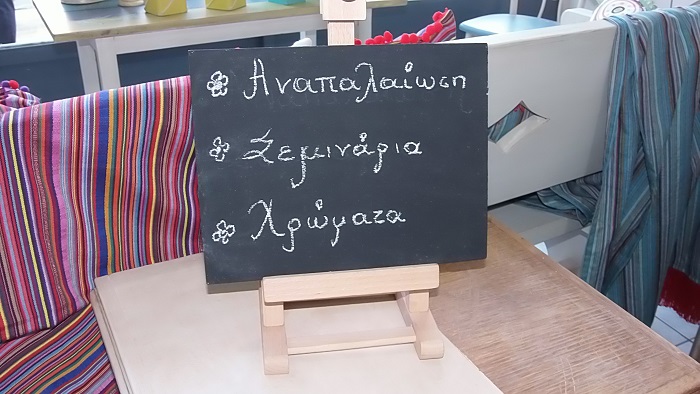 Αναπαλαίωση
Σεμινάρια
Χρώματα